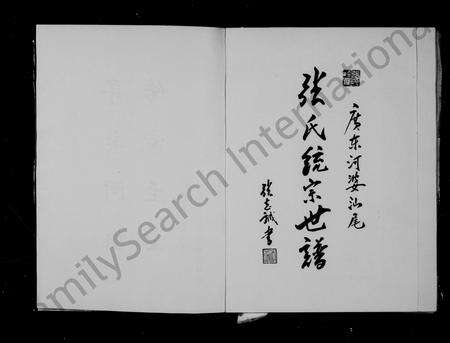 廣东河婆汕尾
张氏统宗世譜
張志誠书
FamilySearch International